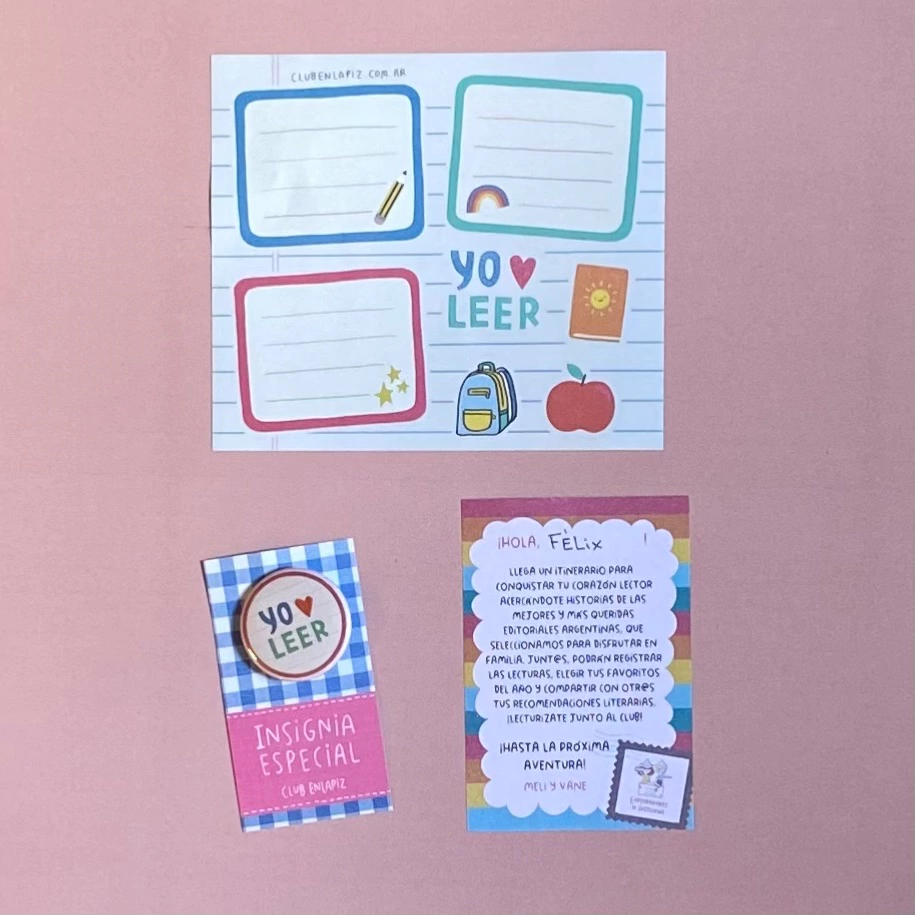 CLUBENLAPIZ.COM.AR
YO
LEER
YO
LEER
INSIGNIA
ESPECIAL
CLUB ENLAPIZ
¡HOLA, FÈLix !
LLEGA UN ITINERARIO PARA
CONQUISTAR TU CORAZÓN LECTOR
ACERCÁNDOTE HISTORIAS DE LAS
MEJORES Y MÁS QUERIDAS
EDITORIALES ARGENTINAS, QUE
SELECCIONAMOS PARA DISFRUTAR EN
FAMILIA. JUNT@S, PODRÁN REGISTRAR
LAS LECTURAS, ELEGIR TUS FAVORITOS
DEL AÑO Y COMPARTIR CON OTR@S
TUS RECOMENDACIONES LITERARIAS.
¡LECTURIZATE JUNTO AL CLUB!
¡HASTA LA PRÓXIMA
AVENTURA!
MELI Y VANE